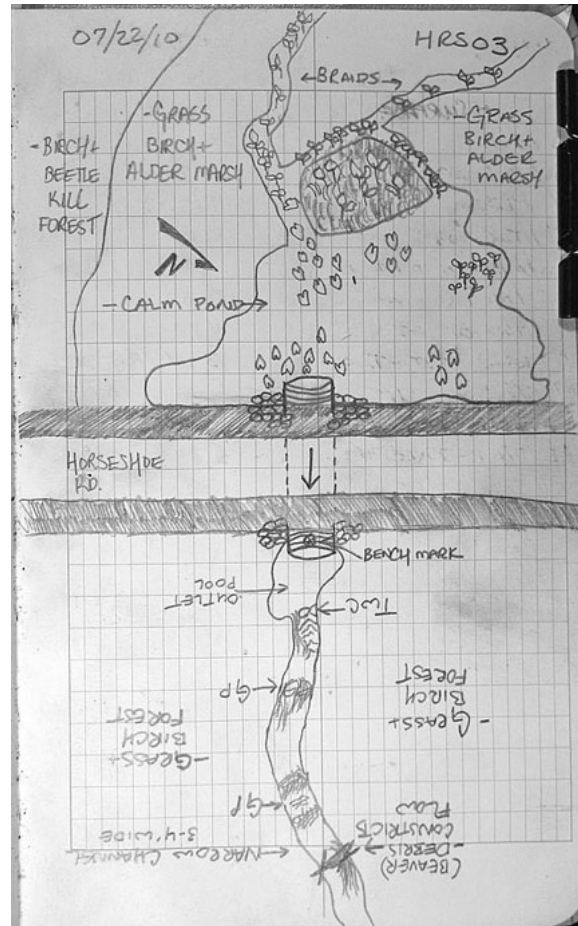 07/22/10
HRS03
BRAIDS
-GRASS
BIRCH+
ALDER MARSH
-GRASS
BIRCH+
ALDER
MARSH
-BIRCH+
BEETLE
KILL
FOREST
N
-CALM POND
HORSESHOE
RD.
BENCH MARK
OUTLET
POOL
TWC
GP
-GRASS+
BIRCH
FOREST
-GRASS+
BIRCH
FOREST
GP
NARROW CHANNEL
3-4' WIDE
(BEAVER)
-DEBRIS
CONSTRICTS
FLOW